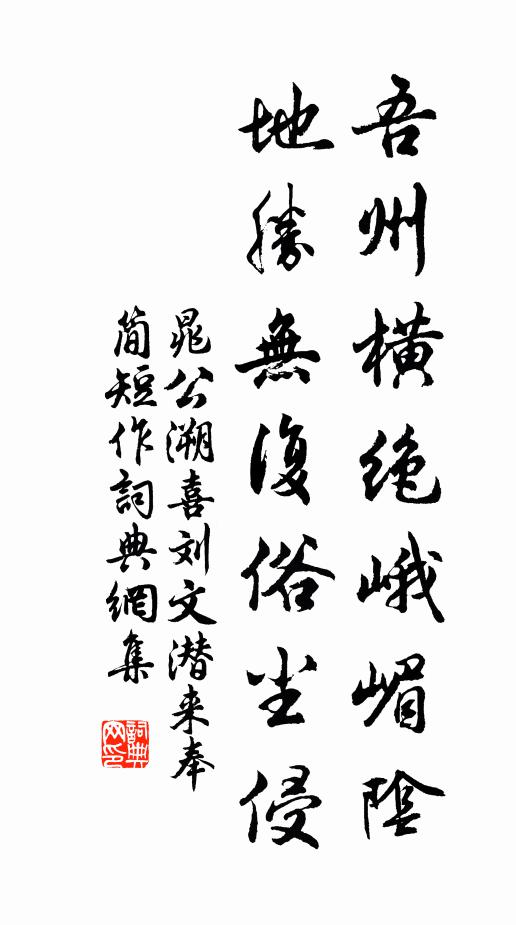 吾州横绝峨嵋陰
地勝無復俗尘侵
晁公溯喜刘文潜来奉
简短作詞典網集
詞典網印